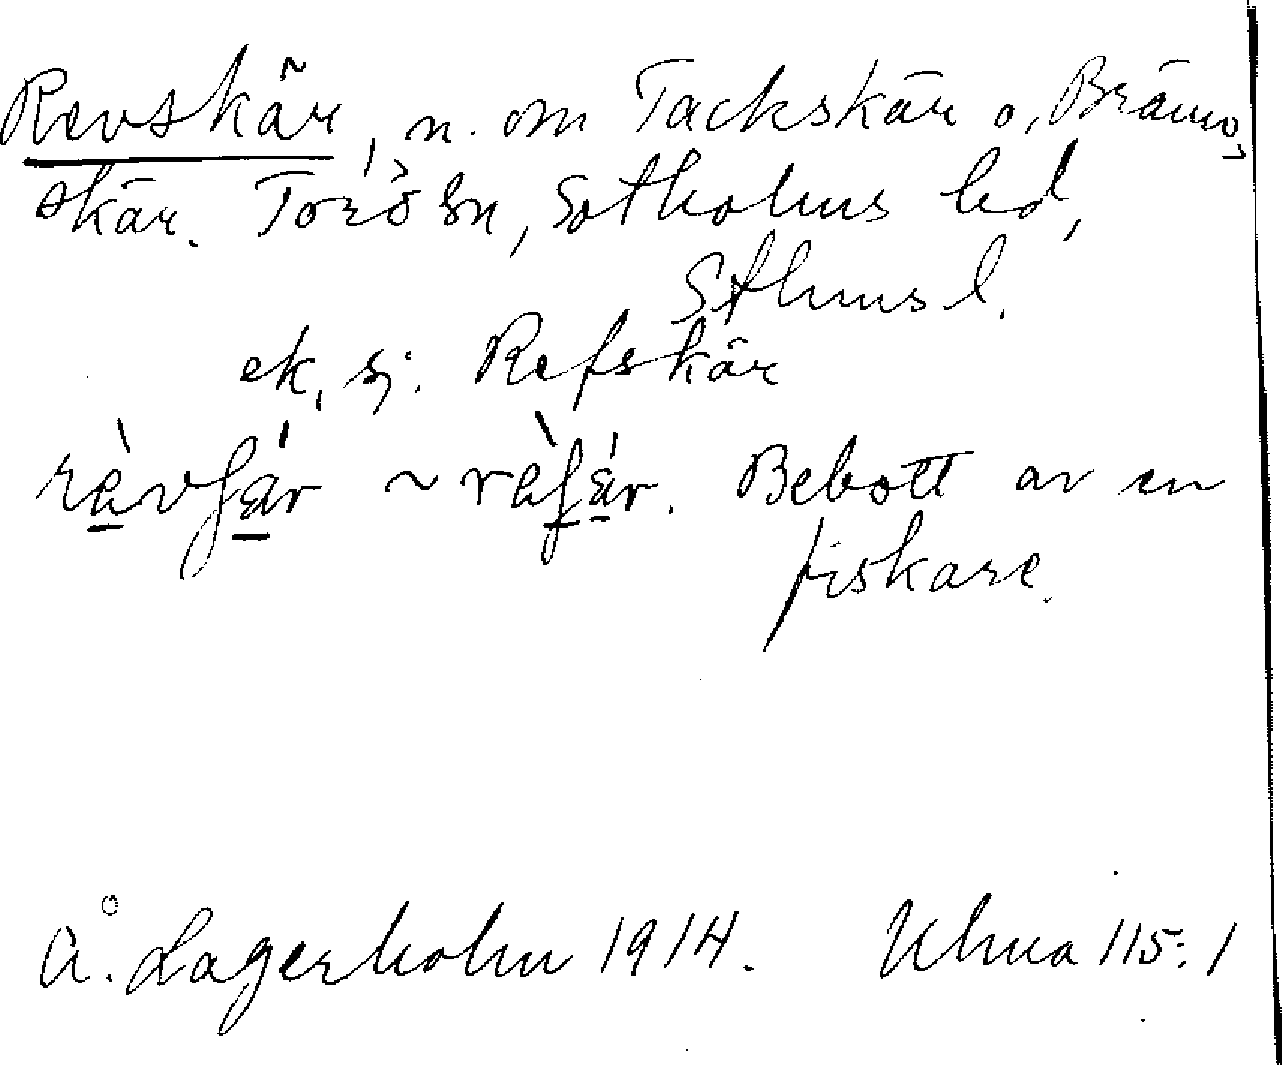 Revskär, n. om Tackskär o. Bränno,
skär. Torö sn, Sotholms hd,
Sthms l.
ek. sj. Refskär
rȧvʃär ~ rȧfʃär. Bebott av en
fiskare.
Å. Lagerholm 1914. Ulma 115:1